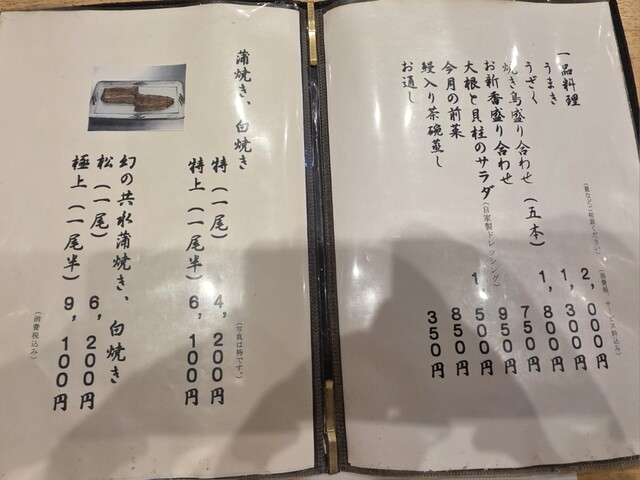 一品料理
(量などご相談ください)
(消費税、サービス料込み)
うまき 2,000円
うざく 1,300円
焼き鳥盛り合わせ(五本) 1,800円
お新香盛り合わせ 750円
大根と貝柱のサラダ(自家製ドレッシング) 950円
今月の前菜 1,500円
鰻入り茶碗蒸し 850円
お通し 350円
蒲焼き、白焼き
(写真は特です。)
特(一尾) 4,200円
特上(一尾半) 6,100円
幻の共水蒲焼き、白焼き
松(一尾) 6,200円
極上(一尾半) 9,100円
(消費税込み)